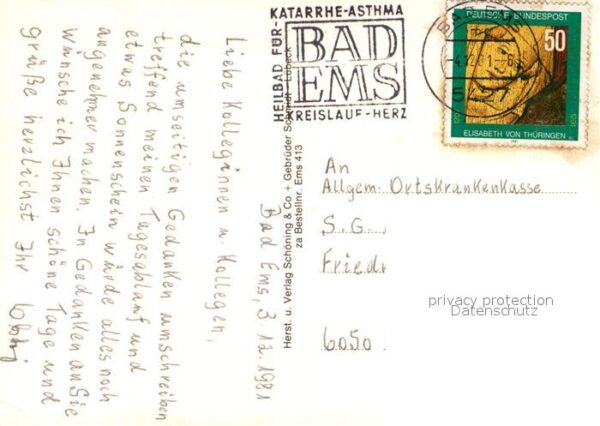 Bad Ems, 3.12.1981
Liebe Kolleginnen u. Kollegen,
die umseitigen Gedanken umschreiben
treffend meinen Tagesablauf und
etwas Sonnenschein würde alles noch
angenehmer machen. In Gedanken an Sie
wünsche ich Ihnen schöne Tage und
grüße herzlichst Ihr
Herst. u. Verlag Schöning & Co + Gebrüder Schmidt - Lübeck
za Bestellnr. Ems 413
HEILBAD FÜR
KATARRHE-ASTHMA
BAD
EMS
KREISLAUF-HERZ
DEUTSCHE BUNDESPOST
50
ELISABETH VON THÜRINGEN
An
Allgem. Ortskrankenkasse
S.G.
Friedr
6050
privacy protection
Datenschutz